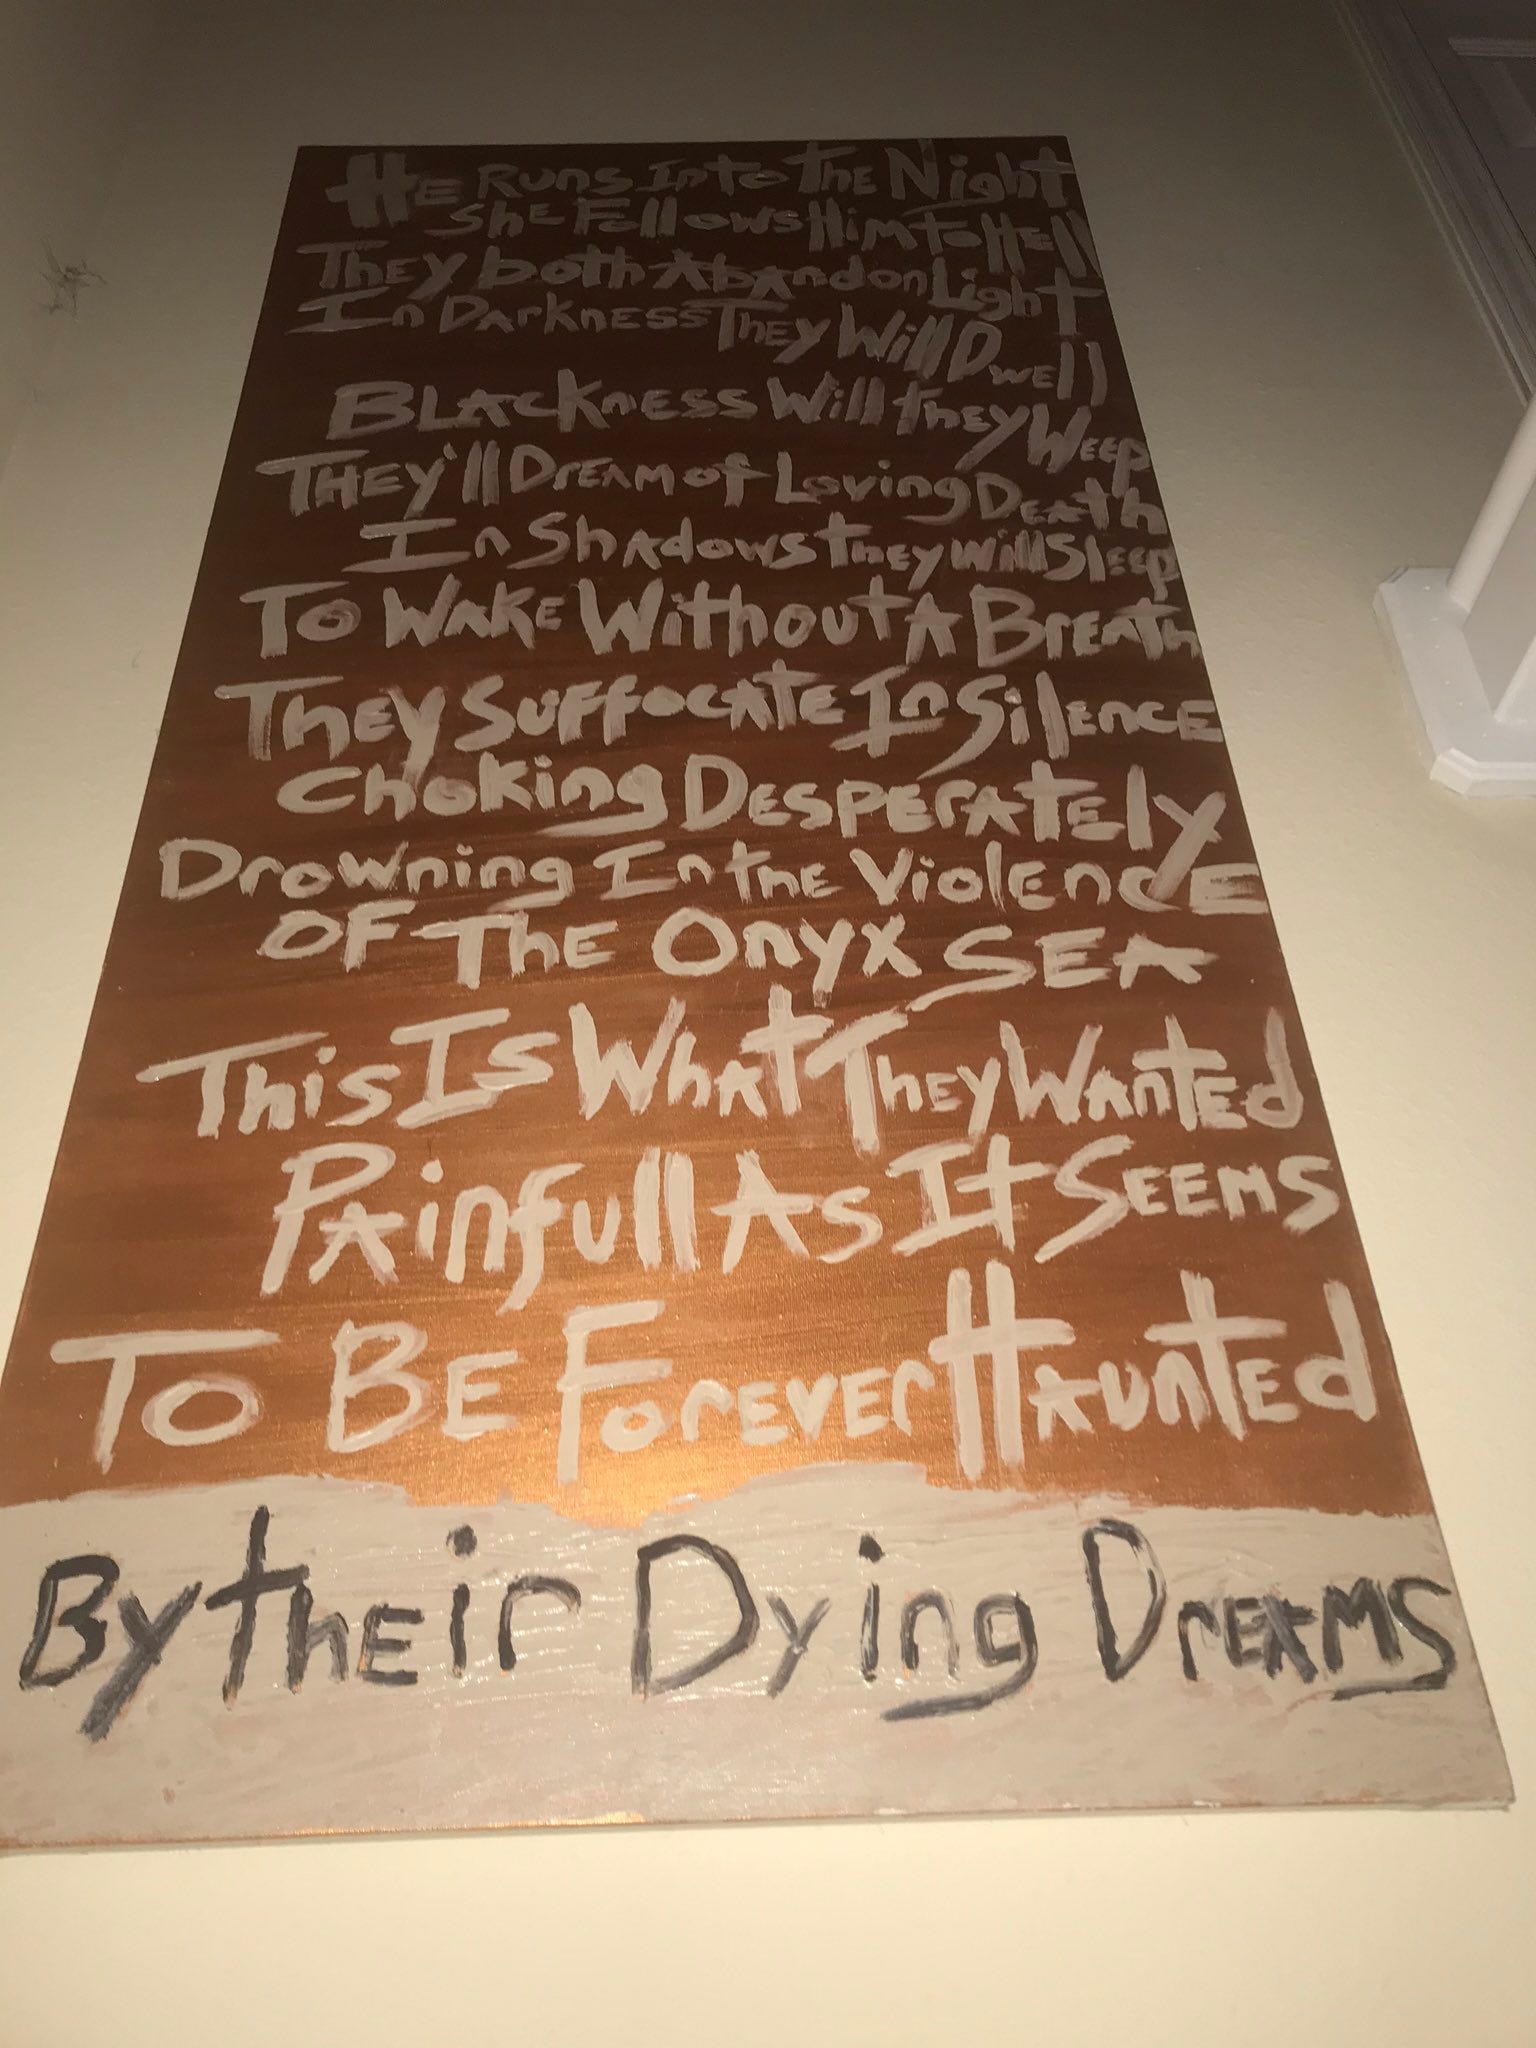 He Runs Into The Night
She Follows Him To Hell
They both Abandon Light
In Darkness They Will Dwell
Blackness Will They Weep
They'll Dream of Loving Death
In Shadows they will Sleep
To Wake Without A Breath
They Suffocate In Silence
Choking Desperately
Drowning In the Violence
Of The Onyx Sea
This Is What They Wanted
Painfull As It Seems
To Be Forever Haunted
By their Dying Dreams